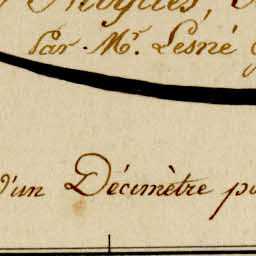 Par Mr. Lesné
d'un Décimètre